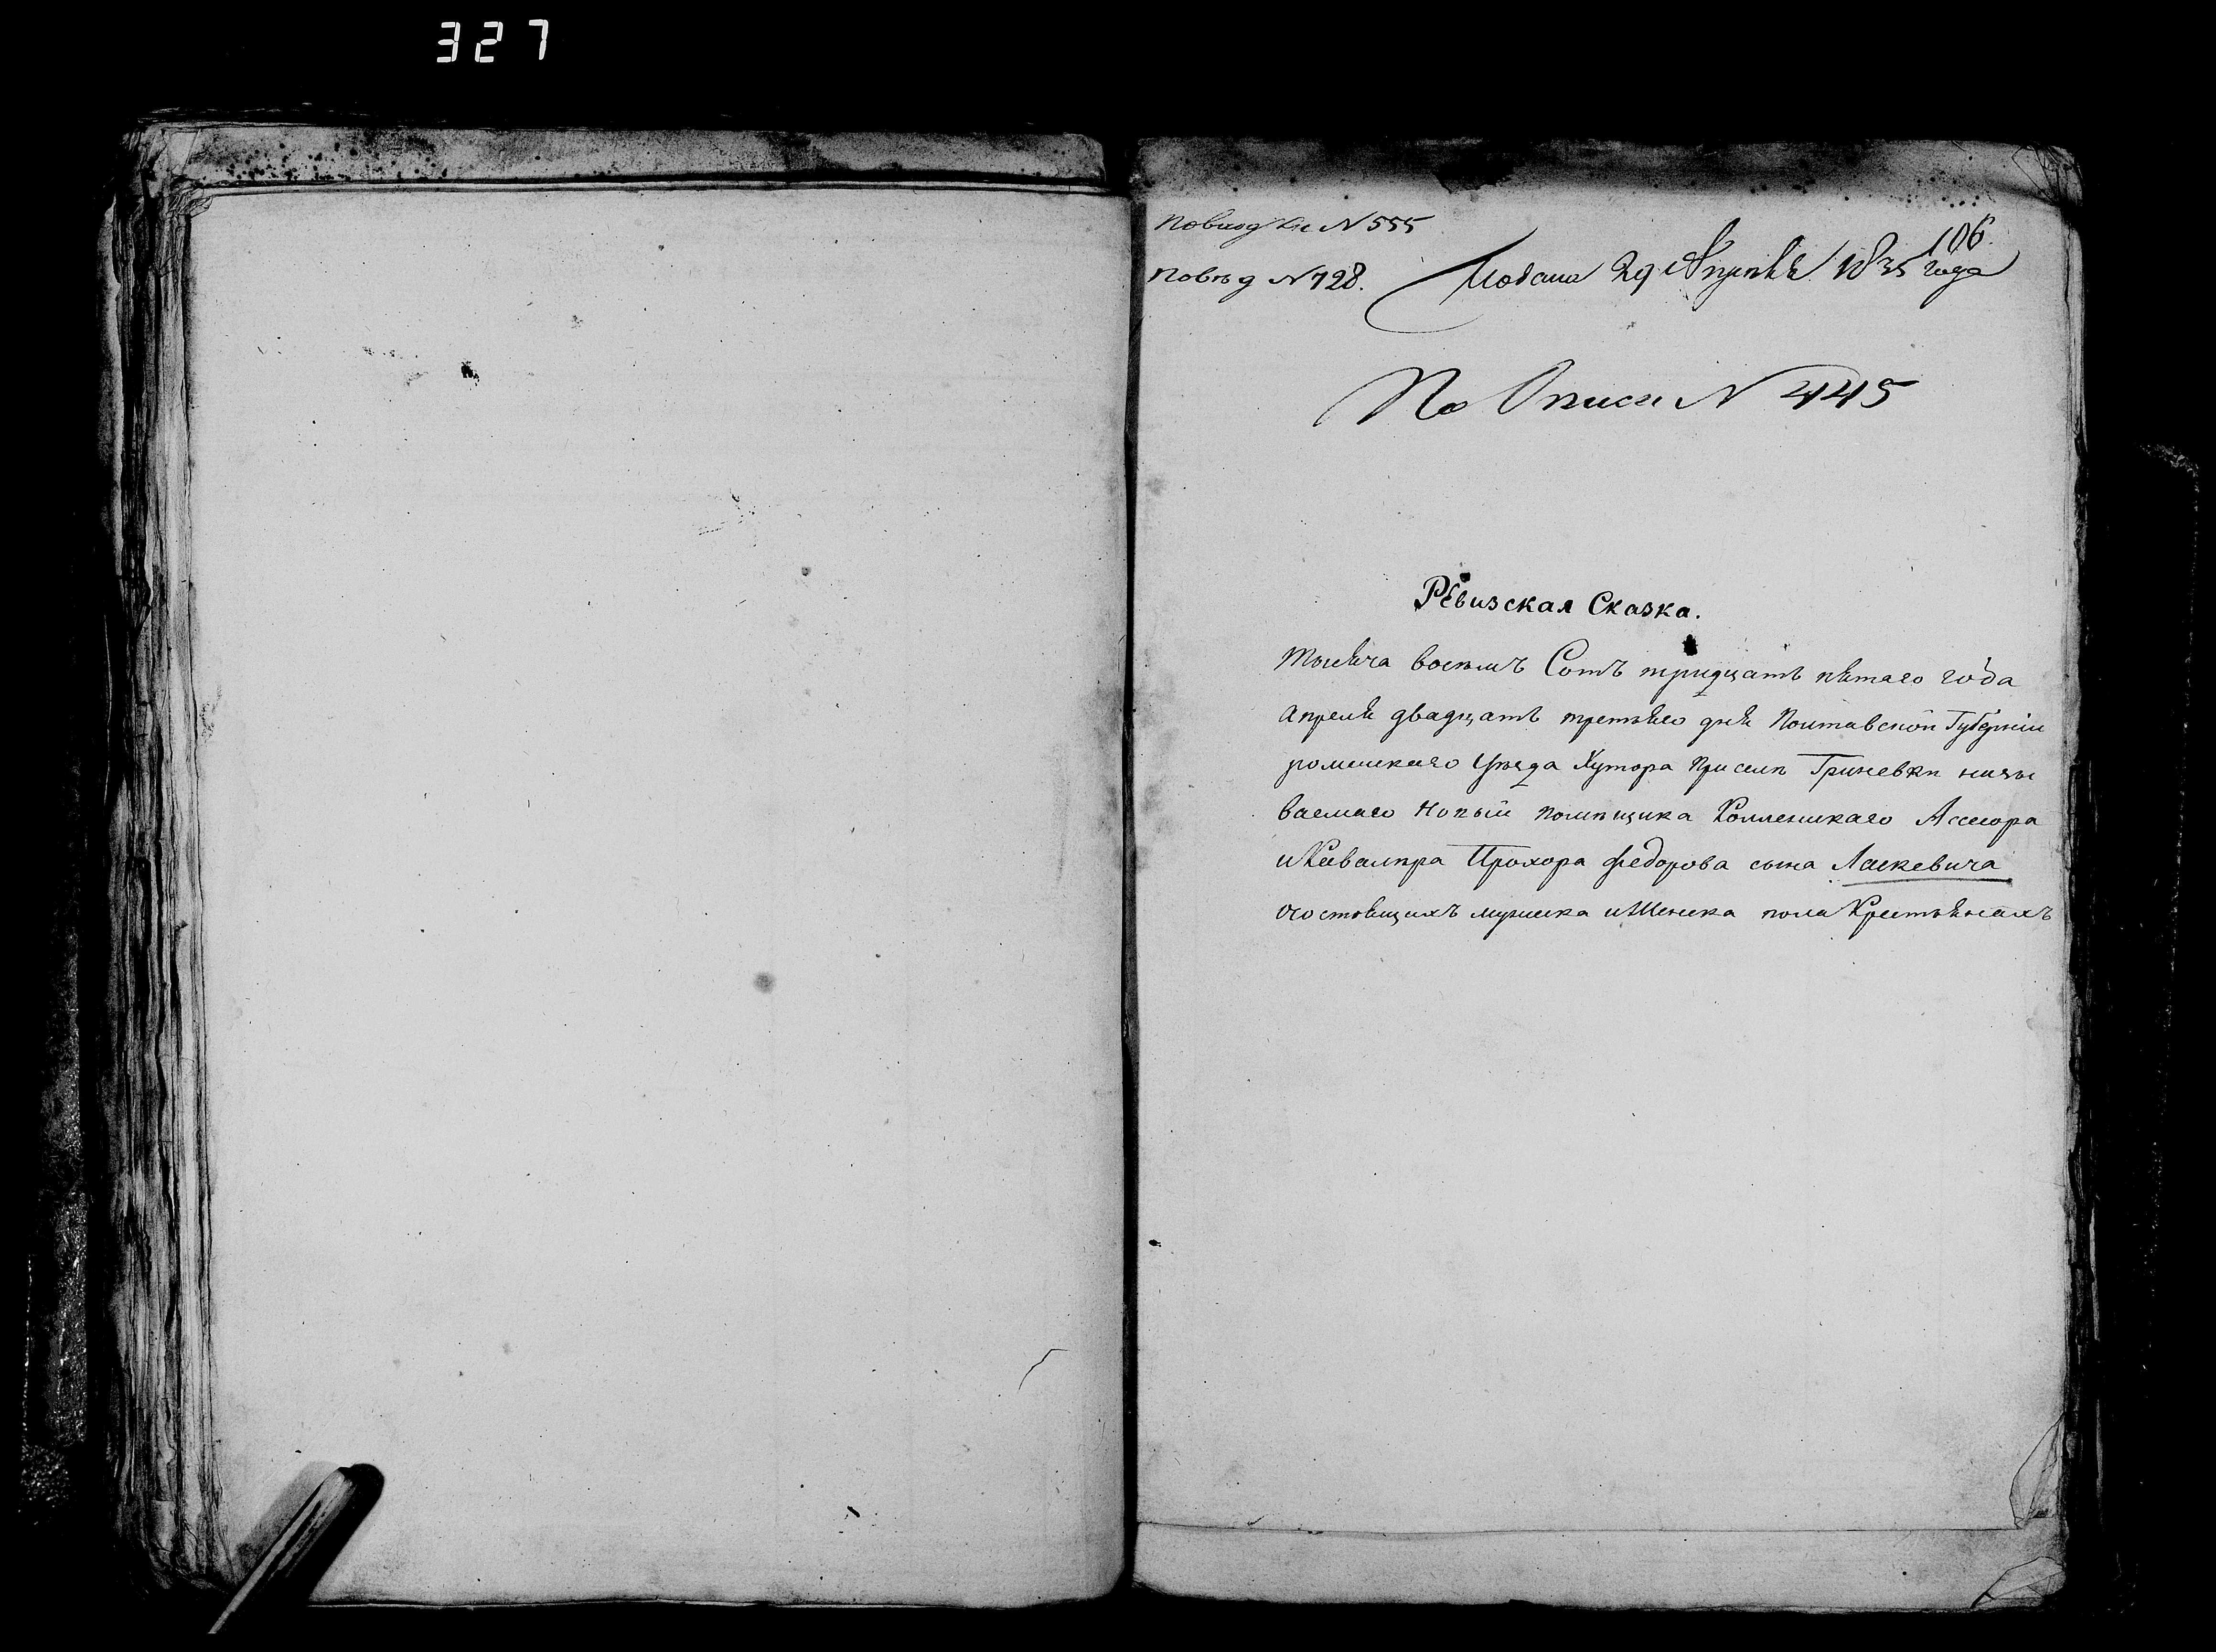 327
106.
По вход Кн N 555
По вѣд N 728.
Подана 29 Апрѣля 1835 года
По Описи N 445
Ревизская Сказка.
Тысяча восѣмъ Сотъ тридцать пятаго года
Апреля двадцать третьяго дня Полтавской Губерніи
роменскаго уѣзда Хутора При селѣ Гриневкѣ назы
ваемаго помѣщика Коллежскаго Ассесора
и Кавалѣра Прохора Федорова сына Ласкевича
о состоящихъ мужеска и Женска пола Крестьянахъ